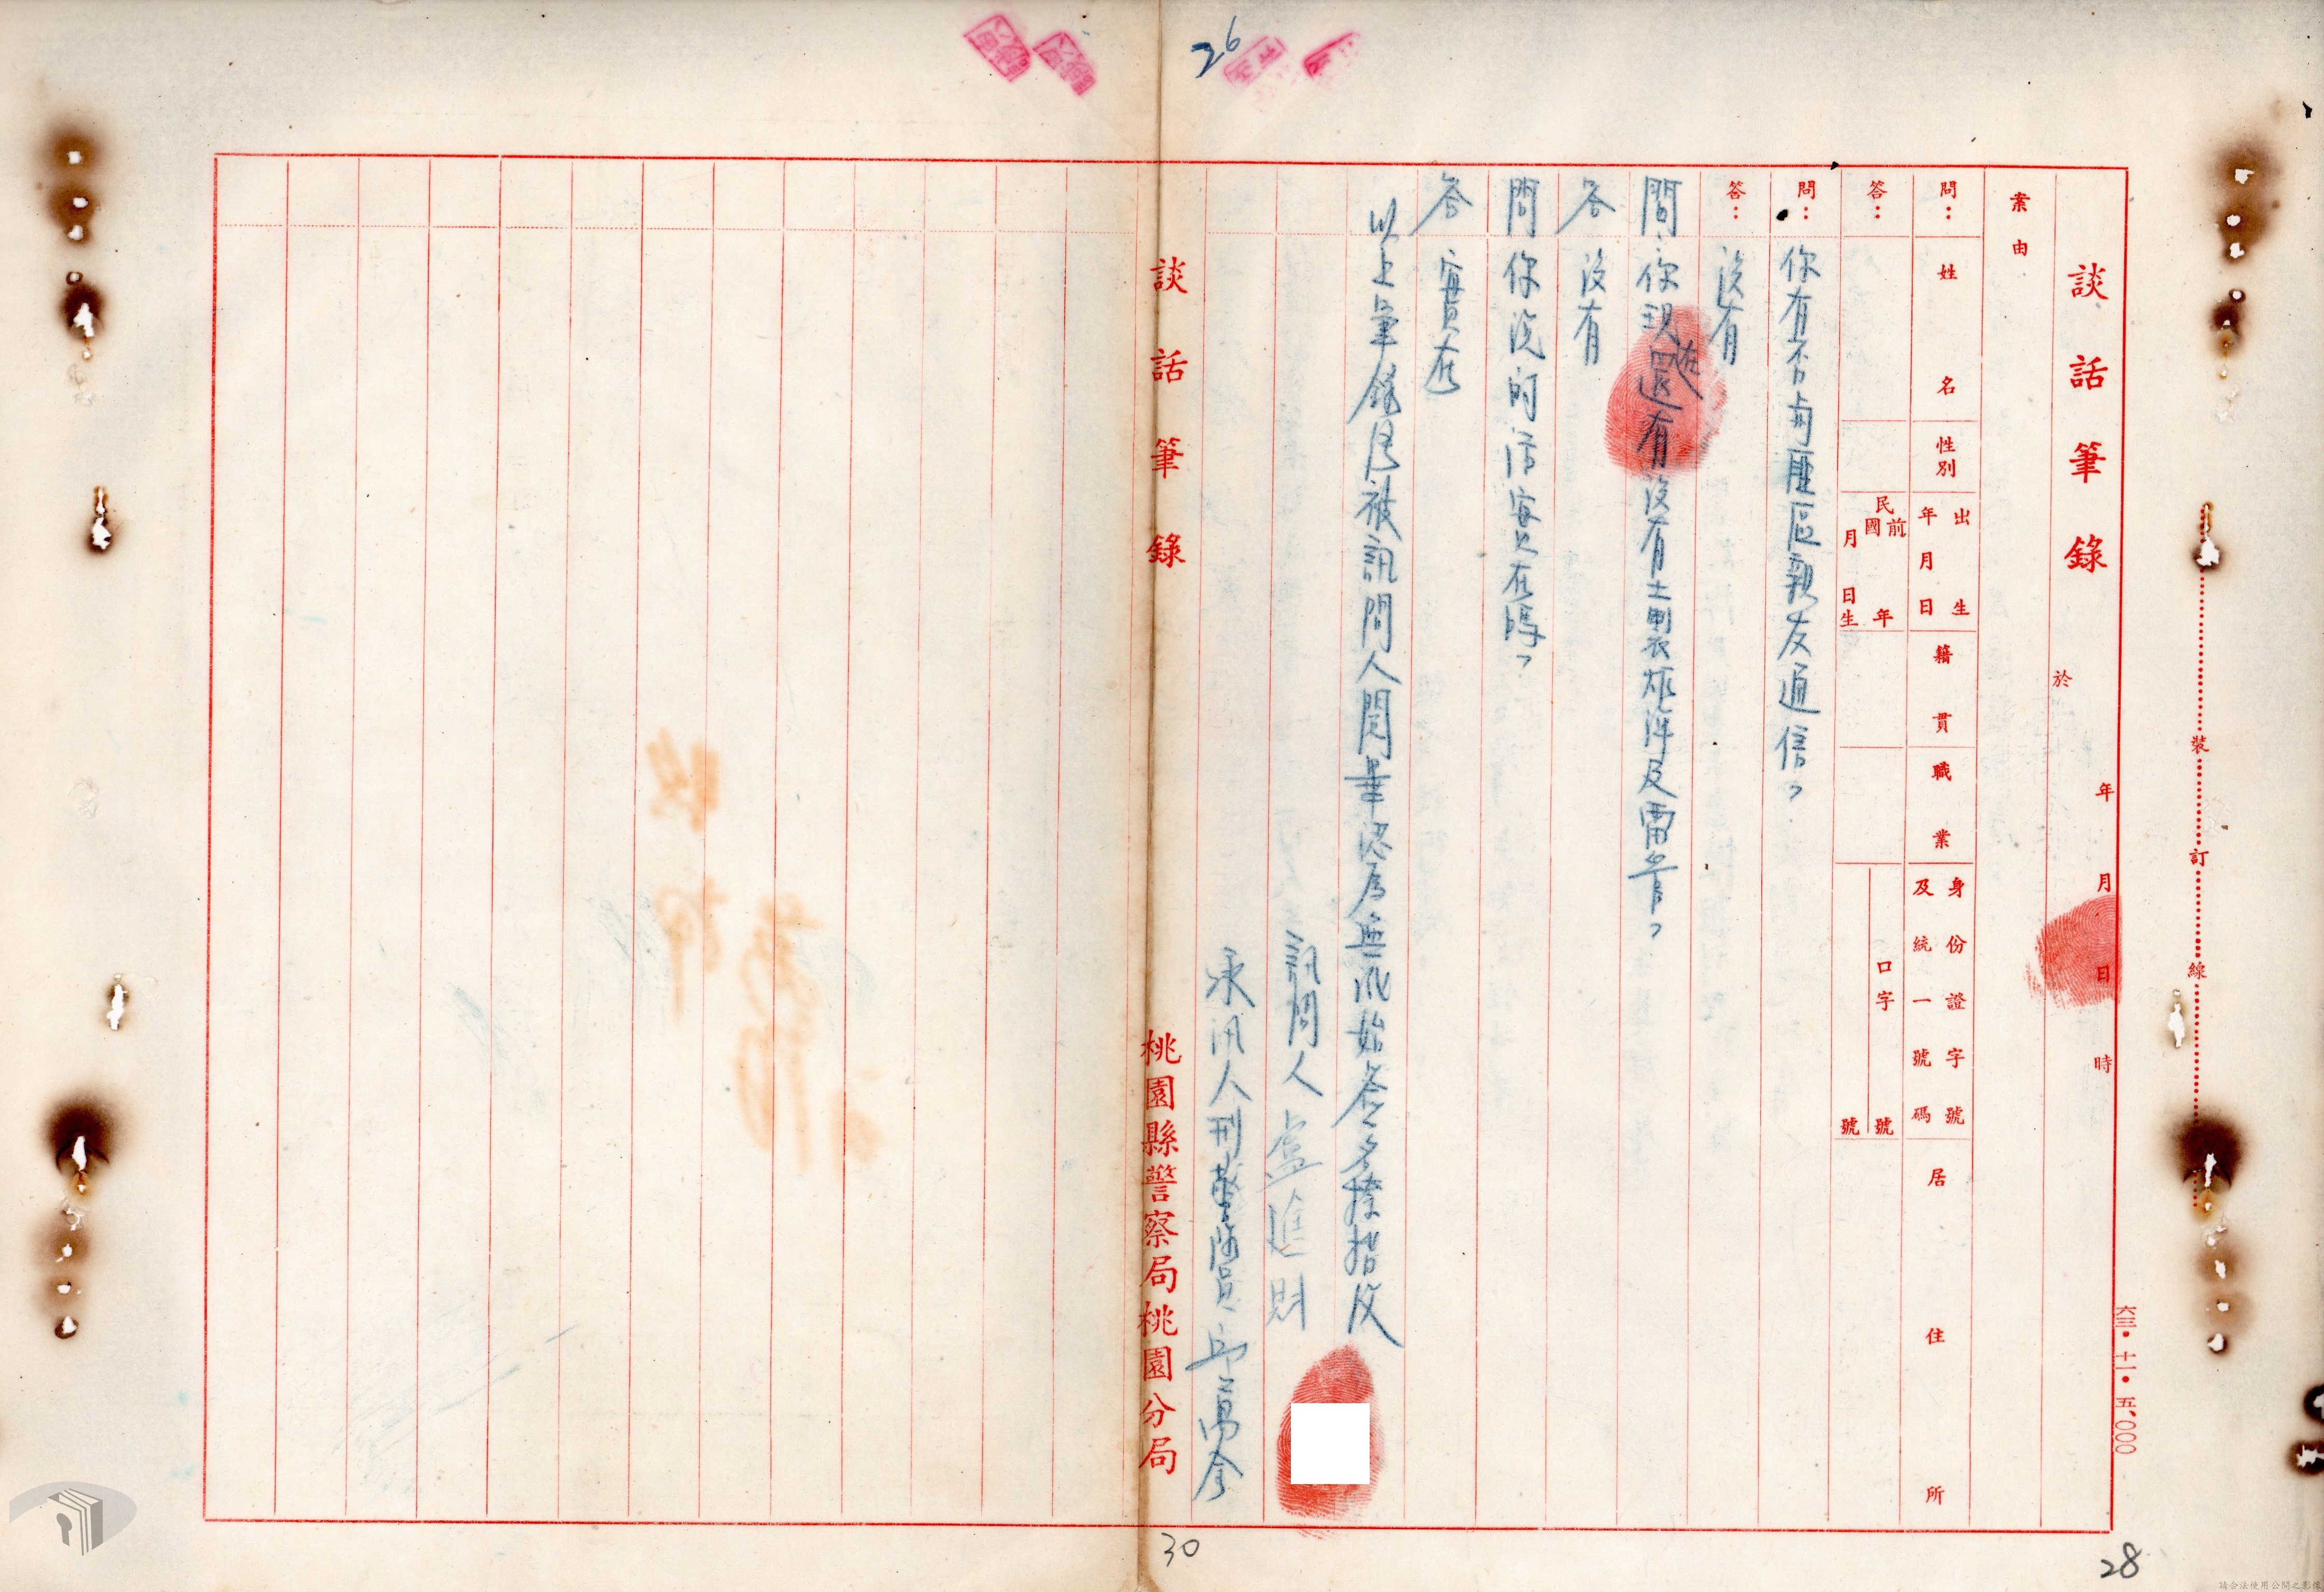 26
談話筆錄
於
年 月 日 時
案由
問：
姓名
性別
出生年月日
籍貫
職業
身份證字號及統一號碼
居住所
答：
民國前 年 月 日生
口字 號
號
問：你有否與匪區親友通信？
答：沒有
問：你現在還有沒有土製炸彈及雷管？
答 沒有
問 你說的話實在嗎？
答 實在
以上筆錄經被訊問人閱畢認為無訛始簽名捺指紋
訊問人 盧進財
承訊人刑警隊員 邱萬全
談話筆錄
桃園縣警察局桃園分局
裝 訂 線
六三．十一．五、○○○
30
28
請合法使用公開之影像